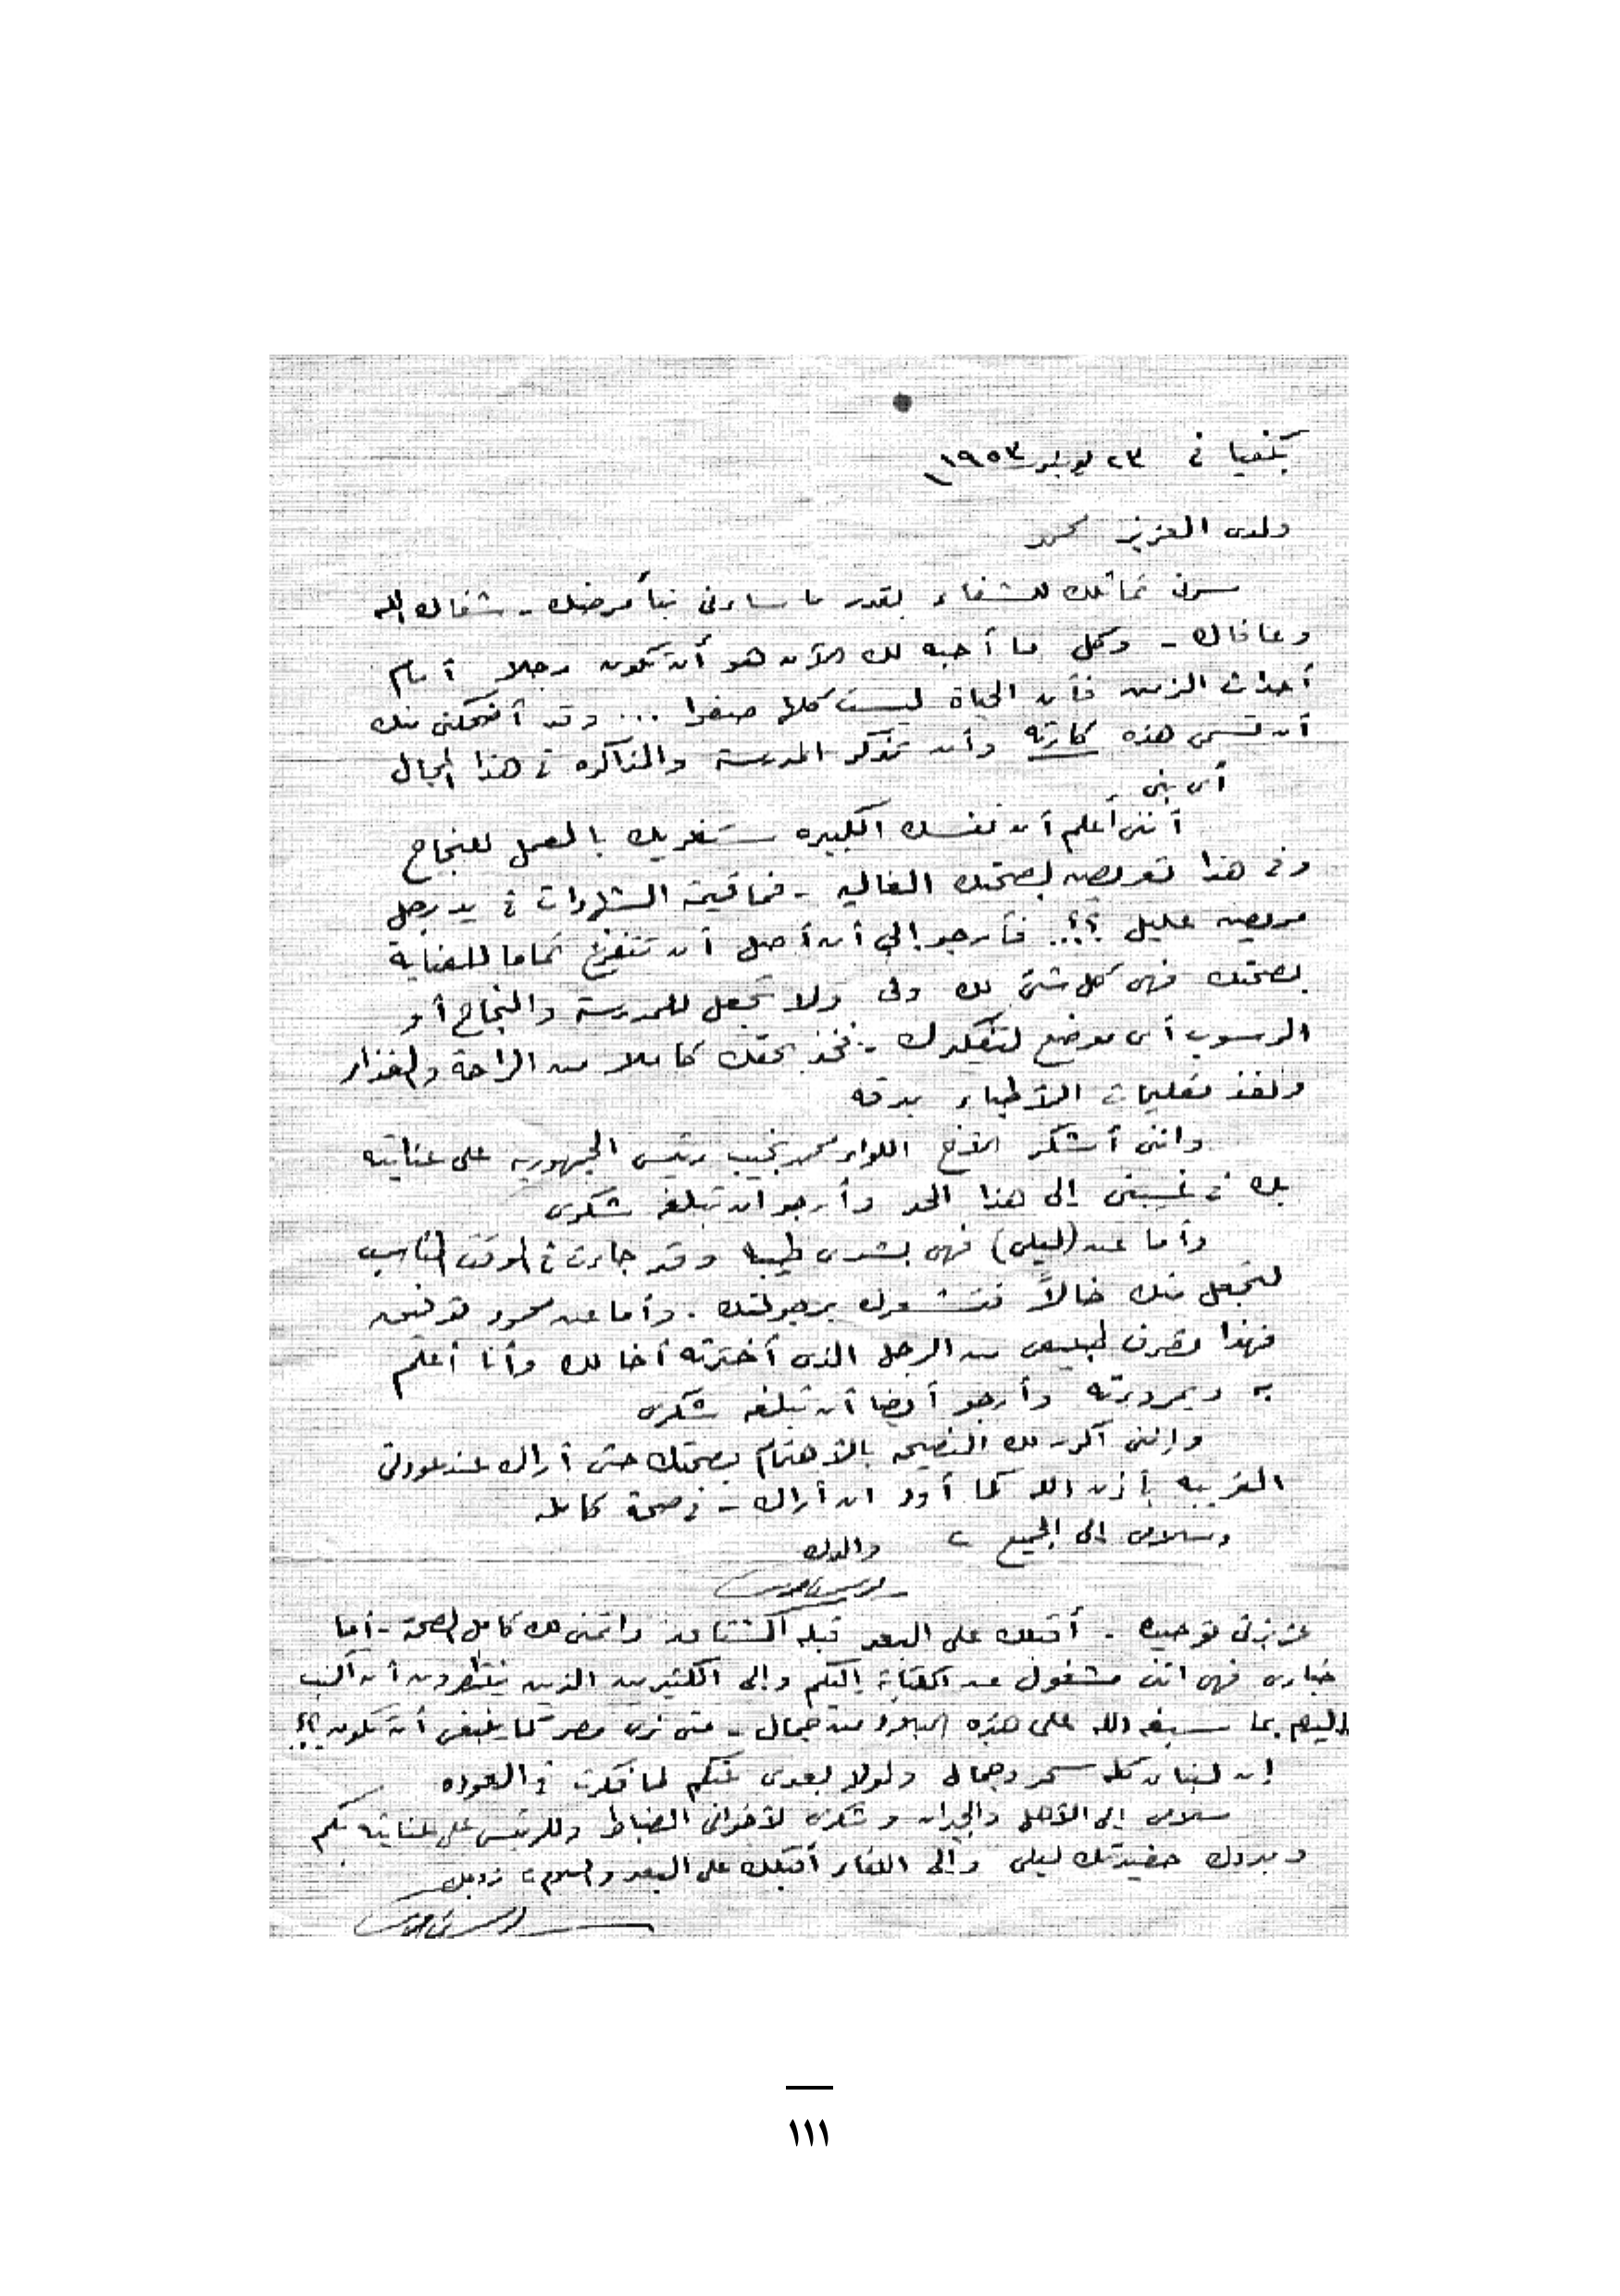 بكفيا فى ٢٣ يوليو ١٩٥٣
ولدى العزيز محمد
سرنى تماثلك للشفاء بقدر ما ساءنى نبأ مرضك - شفاك الله
وعافاك - وكل ما أحبه لك الآن هو أن تكون رجلا أمام
أحداث الزمن فأن الحياة ليست كلها صفوا ... وقد أضحكنى منك
أن تسمى هذه كارثه وأن تذكر المدرسة والمذاكره فى هذا المجال
أى بنى
أننى أعلم أن نفسك الكبيره ستغريك بالعمل للنجاح
وفى هذا تعريض لصحتك الغاليه - فما قيمة الشهادات فى يد رجل
مريض عليل ؟؟.. فأرجو إلى أن أصل أن تتفرغ تماما للعناية
بصحتك فهى كل شئ لك ولى ولا تجعل للمدرسة والنجاح أو
الرسوب أى موضع لتفكيرك - فخذ بحقك كاملا من الراحة والغذاء
ونفذ تعليمات الأطباء بدقه
واننى أشكر الأخ اللواء محمد نجيب رئيس الجمهوريه على عنايته
بك فى غيبتى إلى هذا الحد وأرجو ان تبلغه شكرى
وأما عن (ليلى) فهى بشرى طيبه وقد جاءت فى الوقت المناسب
لتجعل منك خالاً فتشعرك برجولتك . وأما عن محمود توفيق
فهذا تصرف طبيعى من الرجل الذى أخترته أخا لك وأنا أعلم
به وبمروءته وأرجو أيضا أن تبلغه شكرى
وإننى أكرر لك النصيحه بالأهتمام بصحتك حتى أراك عند عودتى
القريبه بأذن الله كما أود ان أراك - فى صحة كامله
وسلامى إلى الجميع والدك
عزيزتى توحيده . أقبلك على البعد قبلة واتمنى لك كامل الصحة - أما
اخبارى فهى اننى مشغول عن الكتابة إليكم وإلى الكثير من الذين ينتظرون أن أكتب
اليهم بما سبغه الله على هذه البلاد من جمال - متى نرى مصر كما ينبغى أن تكون ؟؟!
إن لبنان كله سحر وجمال ولولا بعدى عنكم لما فكرت فى العوده
سلامى إلى الأهل والجيران وشكرى لأخوانى الضباط وللرئيس على عنايته بكم
ومبروك حفيدتك ليلى وإلى اللقاء أقبلك على البعد والسلام زوجك
١١١